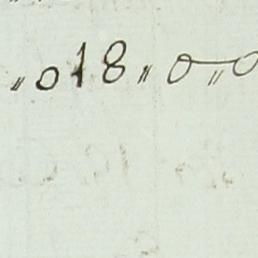 〃018〃0〃0